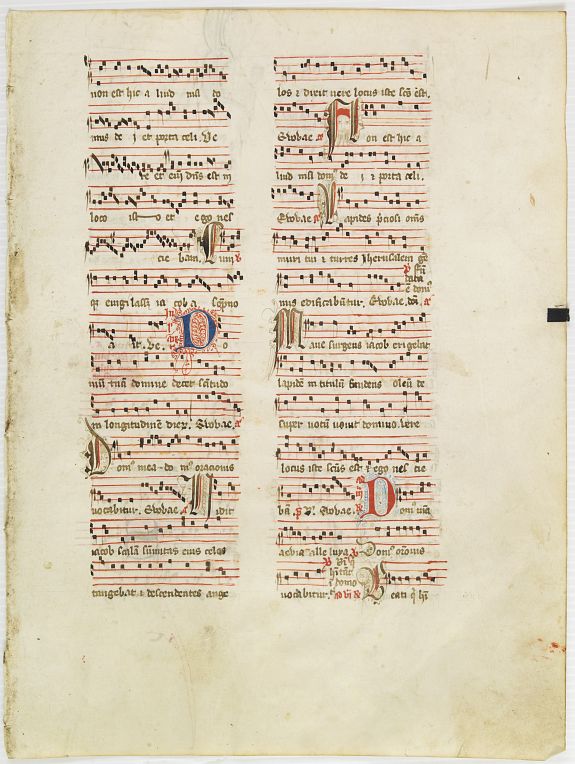 non est hic a liud nisi do
mus de i et porta celi. Ve
re et eni dns est in
loco isto et ego nes
cie bam. Cum
evigilasset ia cob a sopno
a it. Ve. D o
mu tuã domine decet sctitudo
in longitudinẽ dierꝝ. Evovae.
Dom⁹ mea do m⁹ oracionis
vocabitur. Evovae. Vidit
iacob scalã sũmitas eius celos
tangebat ⁊ descendentes ange
los ⁊ dixit vere locus iste scũs est.
Evovae. Non est hic a
liud nisi dom⁹ de i ⁊ porta celi.
Evovae. Lapides p̃ciosi om̃s
muri tui ⁊ turres Jherusalem ge
mis edificabũtur. Evovae.
Mane surgens iacob erigebat
lapidẽ in titulũ fũdens oleũ de
super votũ vovit domino. Vere
locus iste scũs est ⁊ ego nes cie
bã. Evovae. Domũ tuã
aevia alle luya. Dom⁹ or̃onis
vocabitur. Beati q̃ hñ